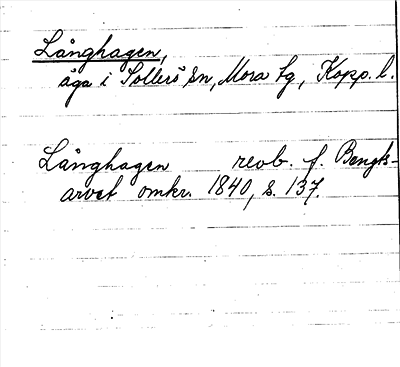 Långhagen,
äga i Sollerö sn, Mora tg, Kopp. l.
Långhagen revb. f. Bengts-
arvet omkr. 1840, s. 137.